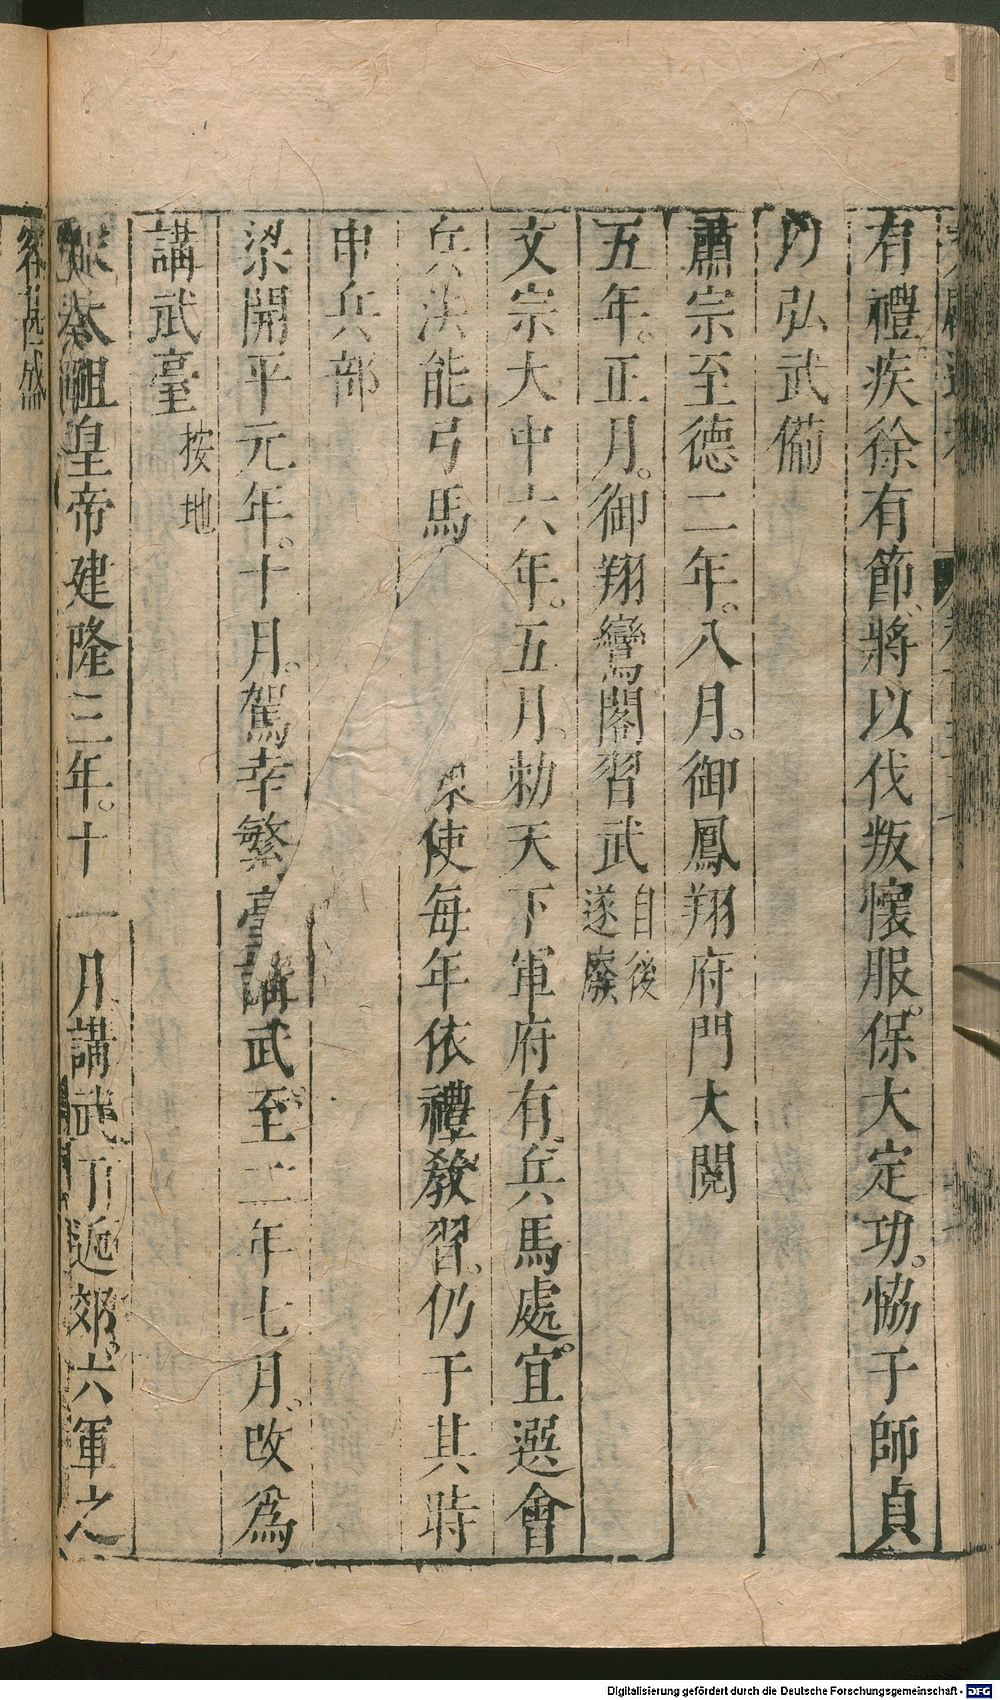 有禮疾徐有節將以伐叛懷服保大定功恊于師貞
乃弘武備
肅宗至德二年八月御鳳翔府門大閱
五年正月御翔鸞閣習武自後遂廢
文宗大中六年五月勅天下軍府有兵馬處宜選會
兵法能弓馬
使每年依禮教習仍于其時
申兵部
梁開平元年十月駕幸繁臺講武至二年七月改為
講武臺按地
太祖皇帝建隆三年十一月講武丁近郊六軍之
容甚盛
Digitalisierung gefördert durch die Deutsche Forschungsgemeinschaft - DFG